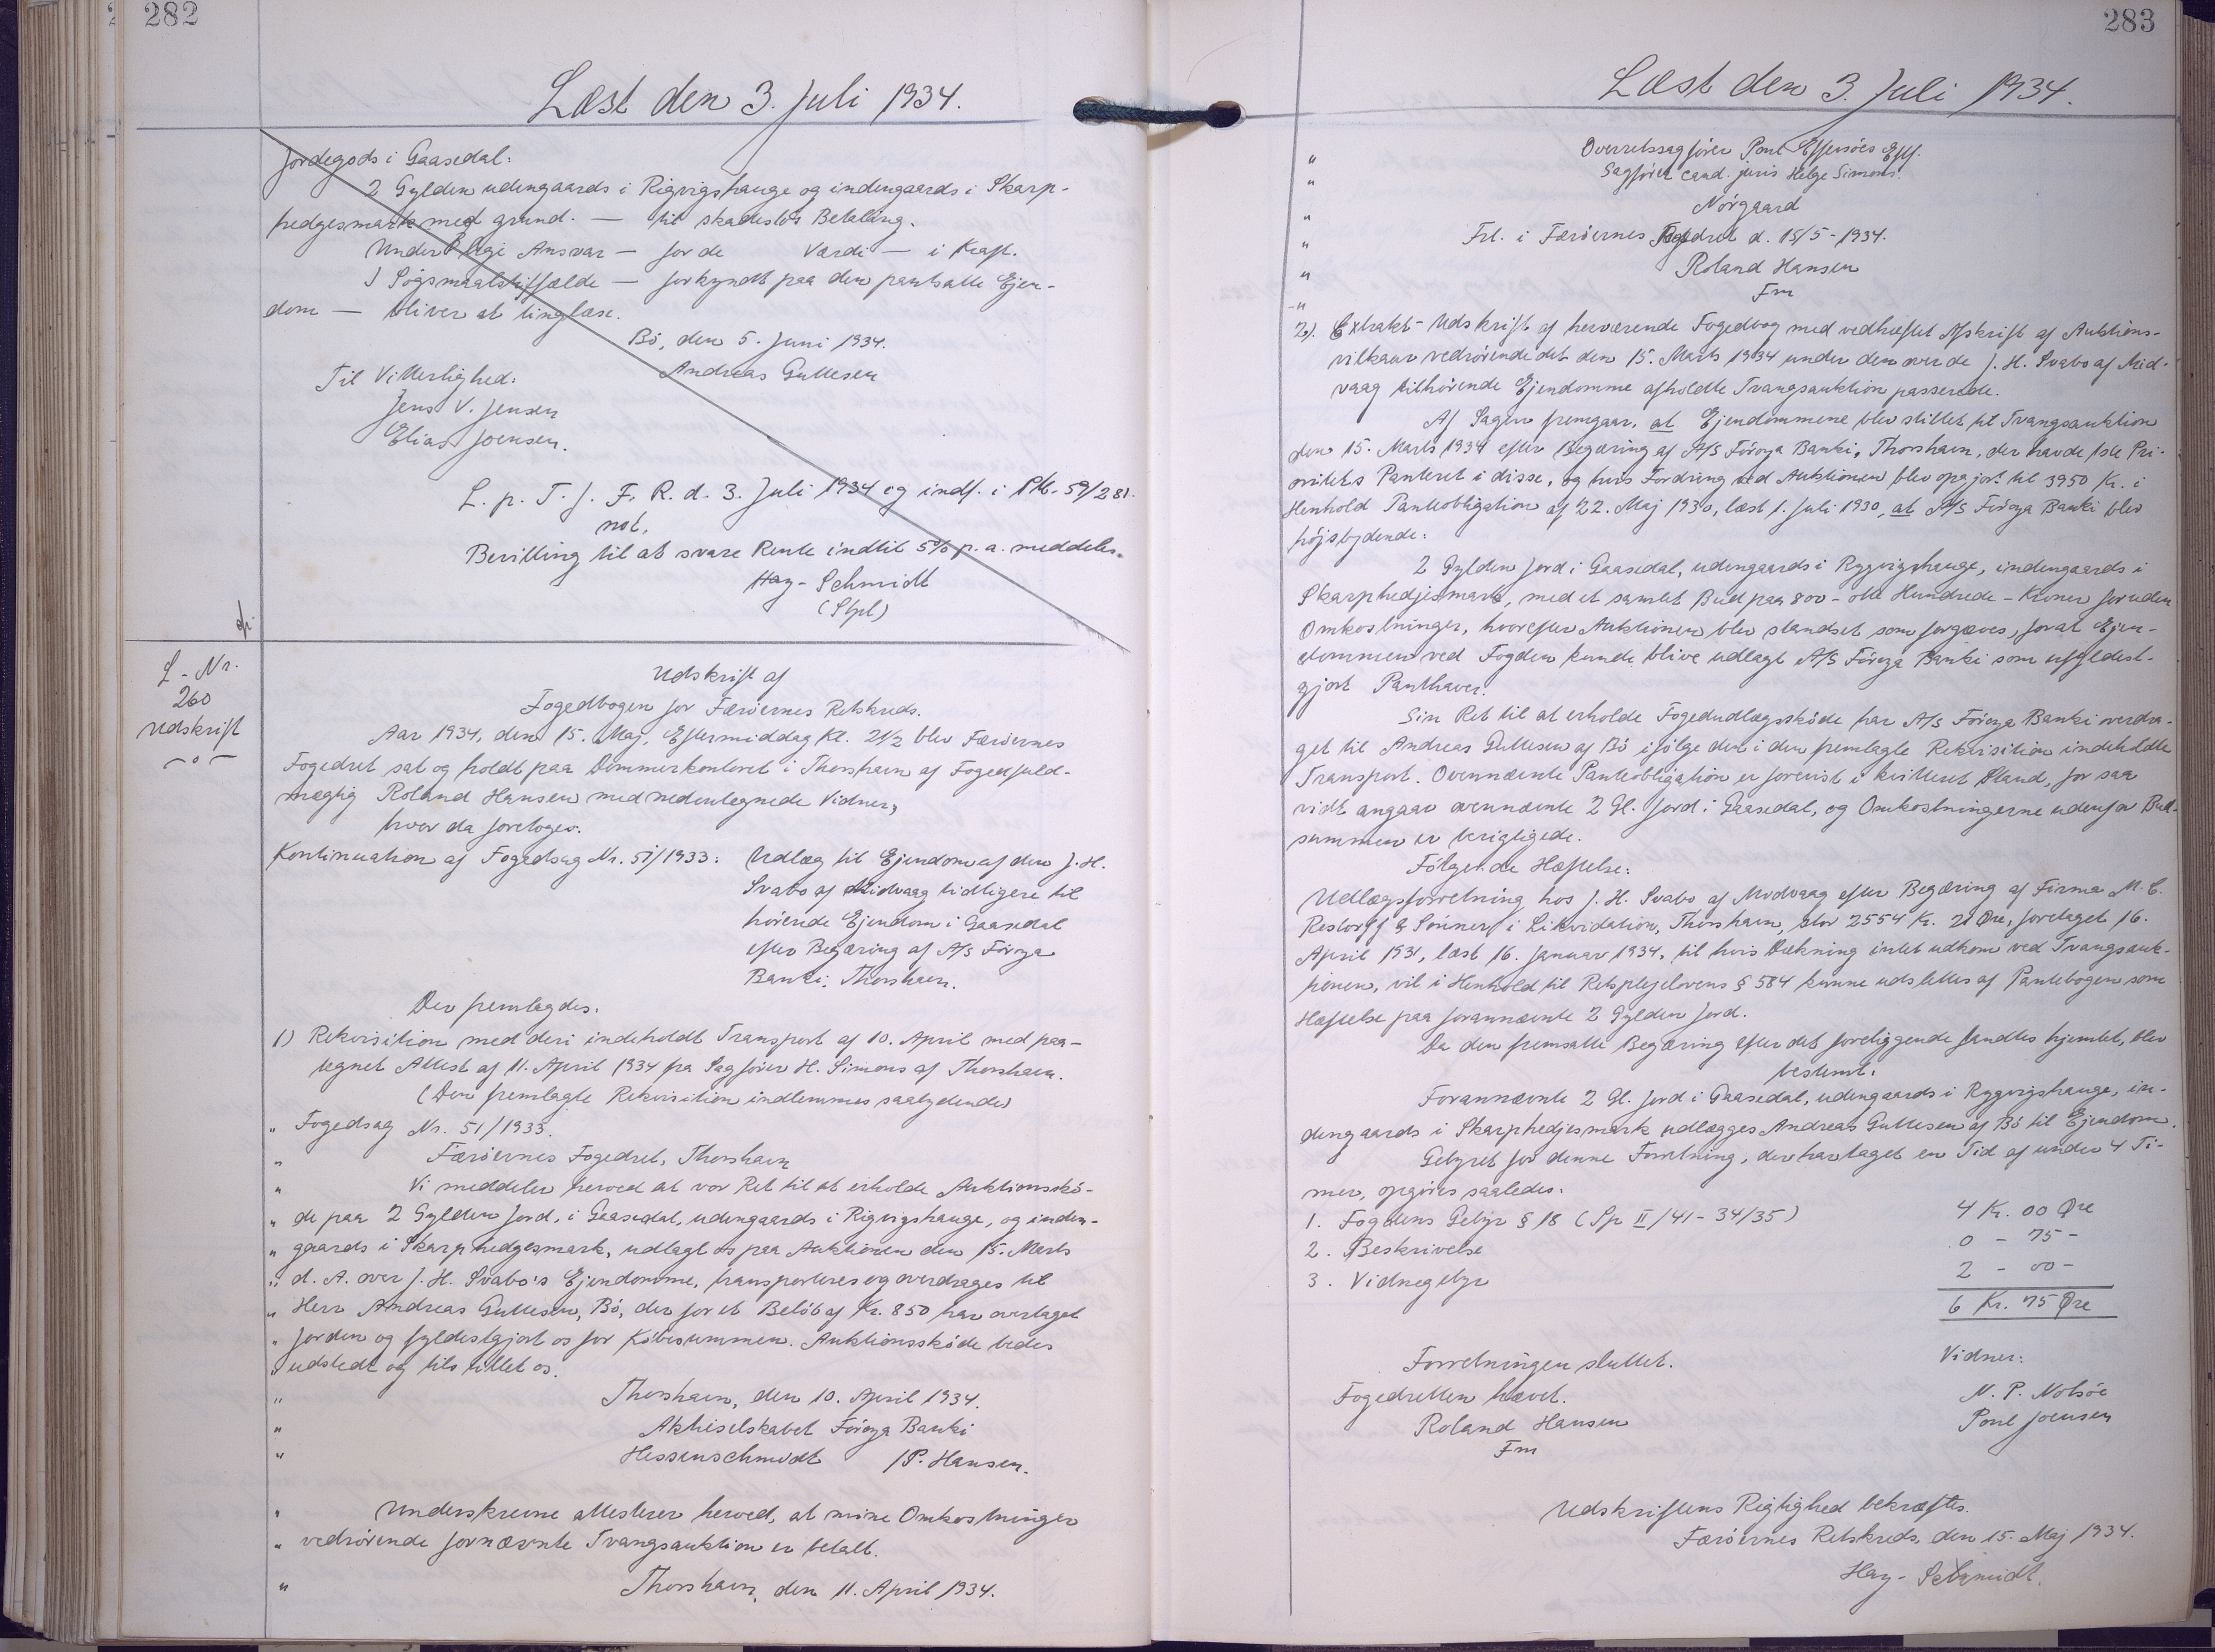 282
Læst den 3. Juli 1934.
Jordegods i Gaasedal:
2 Gylden udengaards i Rigvigshauge og indengaards i Skarp-
hedgesmark med grund. — til skadesløs Betaling.
Under Ansvar — for de Værdi — i Kraft.
I Søgsmaalstilfælde — forkyndt paa den pantsatte Ejen-
dom — bliver at tinglæse.
Bö, den 5. Juni 1934.
Til Vitterlighed: Andreas Gullesen
Jens V. Jensen
Elias Joensen.
L. p. T. f. F. R. d. 3. Juli 1934 og indf. i Ptb. 59/281.
not.
Bevilling til at svare Rente indtil 5% p. a. meddeles.
Hay-Schmidt
(Stpl)
L-Nr.
260
Udskrift
—o—
Udskrift af
Fogedbogen for Færöernes Retskreds.
Aar 1934, den 15. Maj, Eftermiddag Kl. 2½ blev Færöernes
Fogedret sat og holdt paa Dommerkontoret i Thorshavn af Fogedfuld-
mægtig Roland Hansen med nedentegnede Vidner,
hvor da foretoges:
Kontinuation af Fogedsag Nr. 51/1933: Udlæg til Ejendom af den J. H.
Svabo af Midvaag tidligere til
hörende Ejendom i Gaasedal
efter Begæring af A/S Föroya
Banki, Thorshavn.
Der fremlagdes:
1) Rekvisition med deri indeholdt Transport af 10. April med paa-
tegnet Attest af 11. April 1934 fra Sagförer H. Simons af Thorshavn.
(Den fremlagte Rekvisition indlemmes saalydende)
" Fogedsag Nr. 51/1933.
" Færöernes Fogedret, Thorshavn
" Vi meddeler herved at vor Ret til at erholde Auktionsskö-
" de paa 2 Gylden Jord, i Gaasedal, udengaards i Rigvigshauge, og inden-
" gaards i Skarphedgesmark, udlagt os paa Auktionen den 15. Marts
" d. A. over J. H. Svabo's Ejendomme, transporteres og overdrages til
" Herr Andreas Gullesen, Bö, der for et Belöb af Kr. 850 har overtaget
" Jorden og fyldestgjort os for Köbesummen. Auktionsskøde bedes
" udstedt og tilstillet os.
" Thorshavn, den 10. April 1934.
" Aktieselskabet Föroya Banki
" Hessenschmidt /P. Hansen.
" Underskrevne attesterer herved, at mine Omkostninger
" vedrörende fornævnte Tvangsauktion er betalt.
" Thorshavn, den 11. April 1934.
283
Læst den 3. Juli 1934.
" Overretssagförer Poul Effersöes Eftf.
" Sagförer cand. juris Helge Simons.
" Nörgaard
" Frl. i Færöernes Fogedret d. 15/5-1934.
" Roland Hansen
-" Fm
2). Extrakt-Udskrift af herværende Fogedbog med vedhæftet Afskrift af Auktions-
vilkaar vedrörende det den 15. Marts 1934 under den over de J. H. Svabo af Mid-
vaag tilhörende Ejendomme afholdte Tvangsauktion passerede.
Af Sagen fremgaar, at Ejendommene blev stillet til Tvangsauktion
den 15. Marts 1934 efter Begæring af A/S Föroya Banki, Thorshavn, der havde 1ste Pri-
oritets Panteret i disse, og hvis Fordring ved Auktionen blev opgjort til 3950 Kr. i
Henhold Panteobligation af 22. Maj 1930, læst 1. Juli 1930, at A/S Föroya Banki blev
höjstbydende:
2 Gylden Jord i Gaasedal, udengaards i Rygvigshauge, indengaards i
Skarphedjesmark, med et samlet Bud paa 800 - otte Hundrede - Kroner foruden
Omkostninger, hvorefter Auktionen blev standset som forgæves, forat Ejen-
dommen ved Fogden kunde blive udlagt A/S Föroya Banki som ufyldest-
gjort Panthaver.
Sin Ret til at erholde Fogedudlægsskøde har A/S Föroya Banki overdra-
get til Andreas Gullesen af Bö ifölge den i den fremlagte Rekvisition indeholdte
Transport. Ovennævnte Panteobligation er forevist i kvitteret Stand, for saa
vidt angaar ovennævnte 2 Gl. Jord i Gaasedal, og Omkostningerne udenfor Bud-
summen er berigtigede.
Fölgende Hæftelse:
Udlægsforretning hos J. H. Svabo af Midvaag efter Begæring af Firma M. C.
Restorff & Sönner i Likvidation, Thorshavn, stor 2554 Kr. 21 Øre, foretaget 16.
April 1931, læst 16. Januar 1934, til hvis Dækning intet udkom ved Tvangsauk-
tionen, vil i Henhold til Retsplejelovens § 584 kunne udslettes af Pantebogen som
Hæftelse paa forannævnte 2 Gylden Jord.
Da den fremsatte Begæring efter det foreliggende fandtes hjemlet, blev
bestemt:
Forannævnte 2 Gl. Jord i Gaasedal, udengaards i Rygvigshauge, in-
dengaards i Skarphedjesmark udlægges Andreas Gullesen af Bö til Ejendom.
Gebyret for denne Forretning, der har taget en Tid af under 4 Ti-
mer, opgöres saaledes:
1. Fogdens Gebyr § 18 (Sp II/41-34/35) 4 Kr. 00 Øre
2. Beskrivelse 0 - 75 -
3. Vidnegebyr 2 - 00 -
6 Kr. 75 Øre
Forretningen sluttet. Vidner:
Fogedretten hævet. N. P. Nolsöe
Roland Hansen Poul Joensen
Fm
Udskriftens Rigtighed bekræftes.
Færöernes Retskreds, den 15. Maj 1934.
Hay-Schmidt.